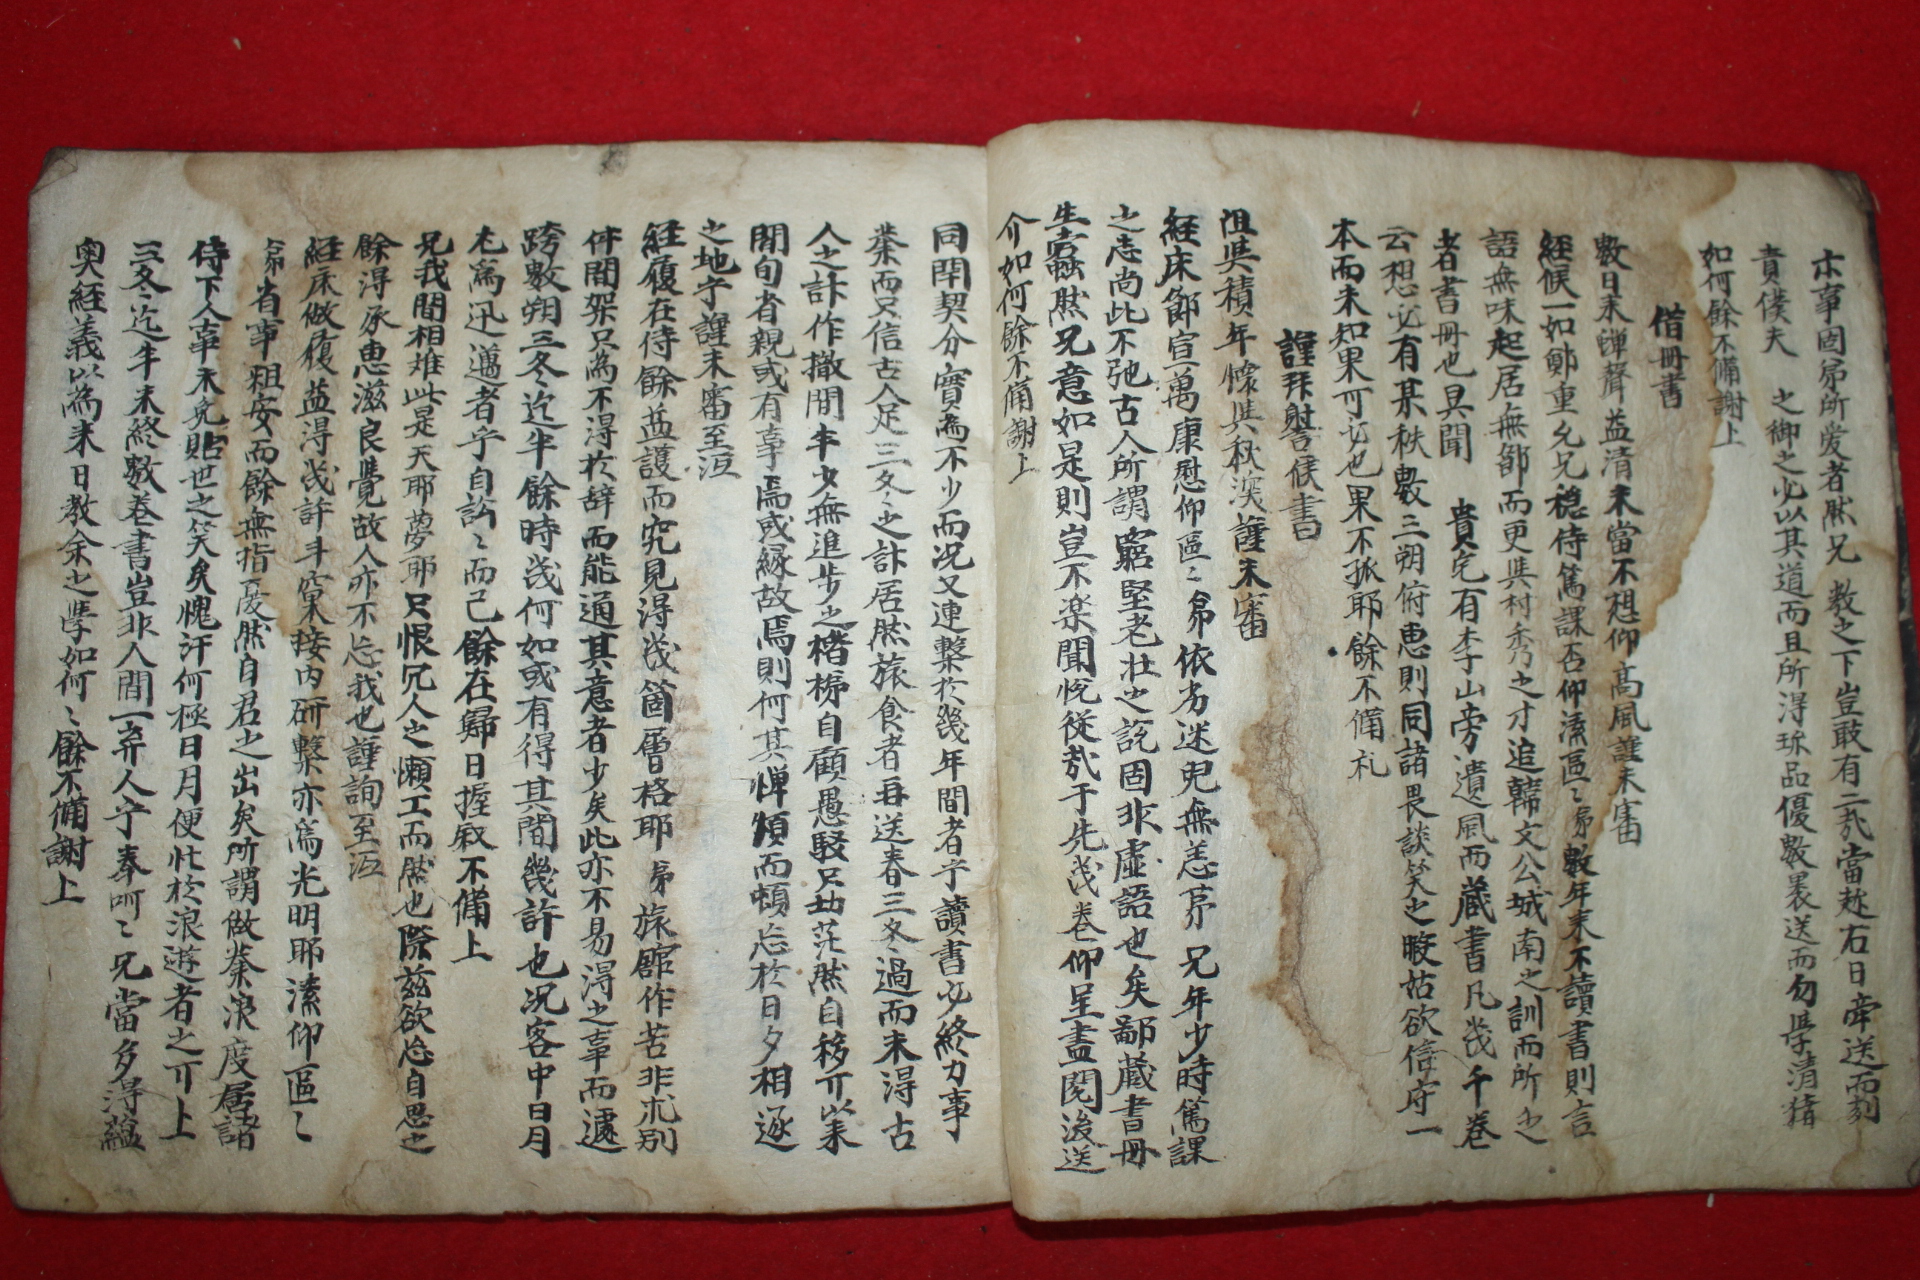 本事固弟所愛者然兄 教之下豈敢有二哉當趂右日牽送而刻
貴僕夫 之御之必以其道而且所得珎品優數褁送而勿學清猪
如何餘不備謝上
借冊書
數日來蟬聲益清未嘗不想仰 高風謹未審
經候一如鄭重允兄穩侍篤課否仰溸區〻弟數年來不讀書則言
語無味起居無鄒而更與村秀之才追韓文公城南之訓而所之
者書冊也具聞 貴宅有李山旁遺風而藏書凡幾千卷
云想必有某秩數三朔俯惠則同諸畏談笑之暇姑欲偉府一
本而未知果可必也果不孤耶餘不備札
謹拜慰候書曰
沮與積年懷與秋漢謹未審
經床節宣萬康慰仰區〻弟依劣迷兒無恙第 兄年少時篤課
之志尚此不弛古人所謂窮堅老壯之說固非虛語也矣鄙藏書冊
生蠹蟲然兄意如是則豈不樂聞悅從哉于先幾卷仰呈盡閱後送
介如何餘不備謝上
同閈契分實爲不少而况又連繫於幾年間者乎讀書必終力事
業而只信古人足三冬〻之計居然旅食者再送春三冬〻過而未得古
人之計作撤閒年少無進步之楮梯自顧愚駿只切茫然自移可以來
閒旬省親或有事焉或緣故焉則何其憚煩而頓忘於日夕相逐
之地乎謹未審至沍
經履在侍餘益護而究見得幾箇層格耶 弟旅館作苦非朮別
件間架只爲不得於辞而能通其意者少矣此亦不易得之事而遽
跨數朔三冬〻迄半餘時幾何如或有得其間幾許也况客中日月
尤爲迅邁者乎自訟〻而已餘在歸日握敍不備上
兄我間相推此是天耶夢耶只恨冗人之懶工而然也際玆欲忘自思之
餘得承惠滋良覺故人亦不忘我也謹詢至沍
經床做履益得幾許斗窠接內研繫亦爲光明耶溸仰區〻
弟省事粗安而餘無指憂然自君之出矣所謂做業浪度居諸
侍下人事未免貽世之笑矣愧汗何極日月便忙於浪遊者之可上
三冬〻迄半未終數卷書豈非人間一弃人乎奉呵〻兄當多得蘊
奥經義以爲來日教余之學如何〻餘不備謝上